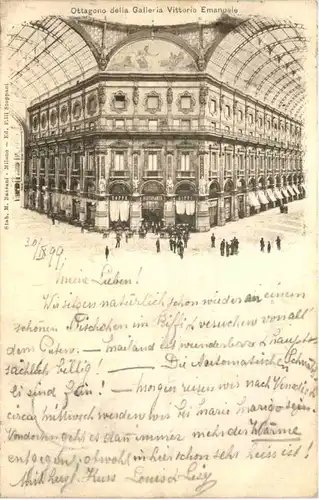 Ottagono della Galleria Vittorio Emanuele
Stab. M. Bassani - Milano - Ed. F.lli Stoppani
CAFFÈ
30/IX 99
Meine Lieben!
Wir sitzen natürlich schon wieder an einem
schönen Tischchen im Biffi & versuchen von all
dem Guten. — Mailand ist wunderbar & haupt-
sächlich billig! — Die Automatische
sind fein! — Morgen reisen wir nach Venedig
circa Mittwoch werden wir bei Marie sein.
Von dort geht es dann immer mehr der Wärme
entgegen obwohl hier schon sehr heiss ist!
Kuss Louis & Lizy